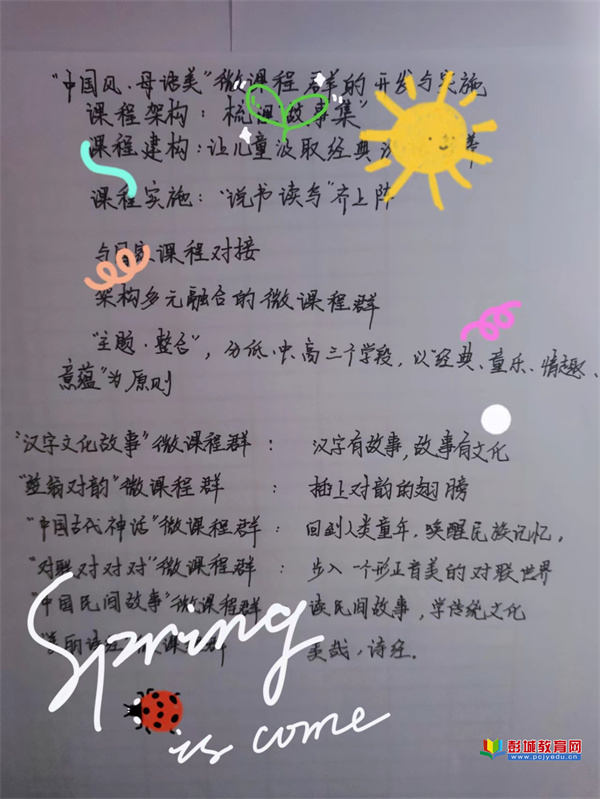 "中国风·母语美"微课程群的开发与实施
课程架构：梳理"故事集"
课程建构：让儿童汲取经典
课程实施："说书读写"齐上阵
与国家课程对接
架构多元融合的微课程群
"主题·整合"，分低、中、高三个学段，以"经典、童乐、情趣、
意蕴"为原则
"汉字文化故事"微课程群： 汉字有故事，故事有文化
"笠翁对韵"微课程群： 插上对韵的翅膀
"中国古代神话"微课程群： 回到人类童年，唤醒民族记忆，
"对联对对对"微课程群： 步入一个形正音美的对联世界
"中国民间故事"微课程群 读民间故事，学传统文化
美哉，诗经.
Spring
is come
彭城教育网
www.pcjyedu.cn